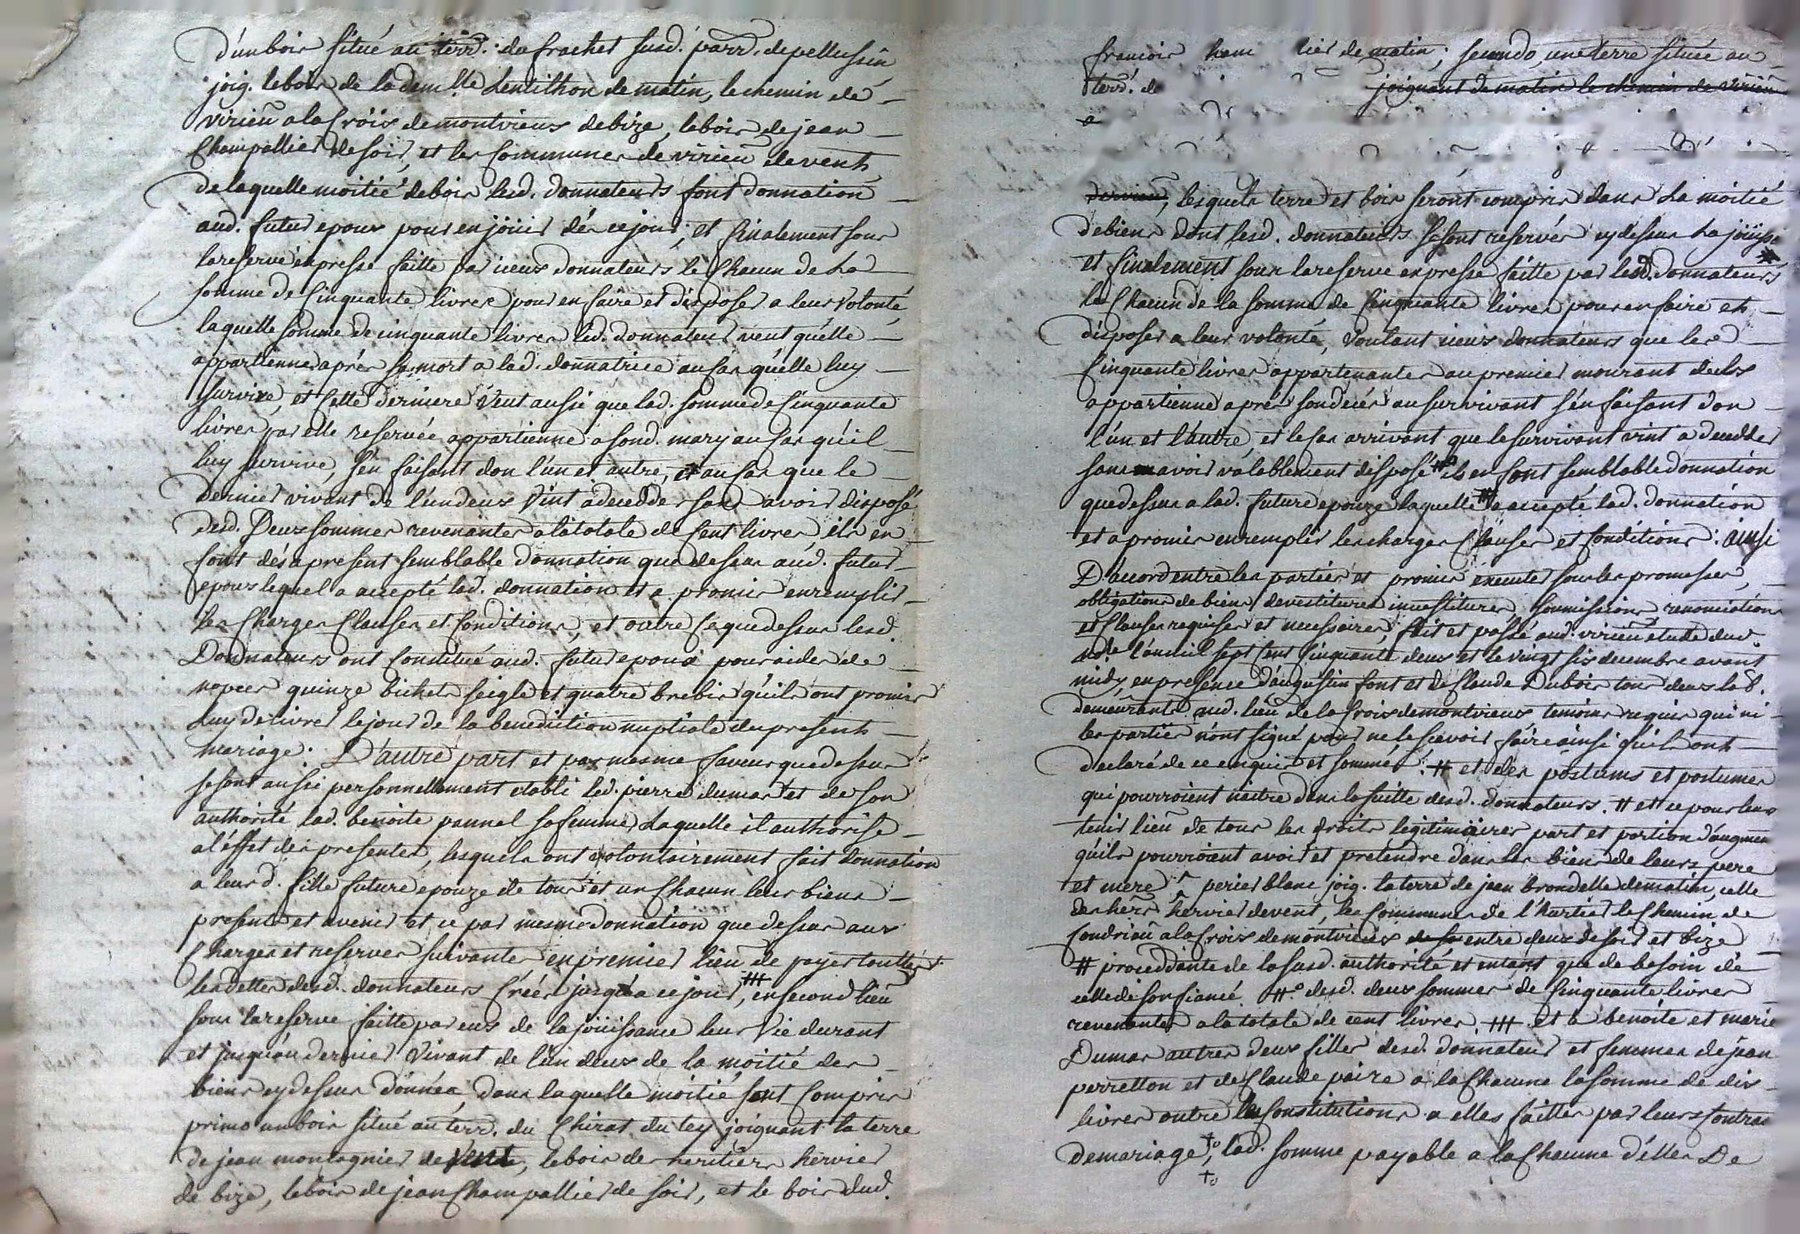 d'un bois situé au terr. du frachet susd. parr. de pellussin
joig. le bois de la dem.lle Lentilhon de matin, le chemin de
virieü a la Croix de montvieux de bize, le bois de jean
Champallier de soir, et les Communes de virieü de vent
de laquelle moitiée de bois lesd. donnateurs font donnation
aud. futur epoux pour en joüir dés ce jour, et finalement sous
la reserve expresse faitte par iceux donnateurs de Chacun de La
somme de Cinquante livres pour en faire et disposer a leur volonté
laquelle somme de cinquante livres led. donnateur veut qu'elle
appartienne aprés sa mort a lad. donnatrice au cas qu'elle luy
survive, et Cette derniere veut aussi que lad. somme de Cinquante
livres par elle reservée appartienne a sond. mary au cas qu'il
luy survive, s'en faisant don l'un et autre, et au cas que le
dernier vivant de l'un deux vint a decedder sans avoir disposé
desd. Deux sommes revenantes a la totale de Cent livres ils en
font dés a present semblable donnation que dessus aud. futur
epoux lequel a accepté lad. donnation et a promis en remplir
les Charges Clauses et Conditions, et outre Ce que dessus lesd.
Donnateurs ont Constitué aud. futur epoux pour aider de
nopces quinze bichets seigle et quatre brebis qu'ils ont promis
Luy delivrer le jour de la benediction nuptiale du present
mariage. D'autre part et par mesme faveur que dessus
se sont aussi personnellement etabli led. pierre dumas et de son
authorité lad. benoite pannel sa femme, Laquelle il authorise
a l'effet des presentes, lesquels ont volontairement fait donnation
a leurd. fille future epouze de tous et un Chacun leurs biens
presents et avenir et ce par mesme donnation que dessus aux
Charges et reserves suivantes en premier lieu de payer touttes
les dettes desd. donnateurs Créés jusqu'a ce jour, ## en second lieu
sous la reserve faitte par eux de la joüissance leur vie durant
et jusqu'au dernier vivant de l'un deux de la moitié des
biens cy dessus donnés dans laquelle moitié sont Compris
primo un bois situé au terr. du Chirat du ley joignant la terre
de jean montagnier de vent, le bois des heritiers hervier
de bize, le bois de jean Champallier de soir, et le bois dud.
francois lier de matin; secundo une terre située au
terr. de joignant de matin le chemin de virieü
a
lesquels terre et bois seront compris dans La moitié
de biens dont lesd. donnateurs se sont reservés cy dessus La joüiss.
et finalement sous la reserve expresse faitte par lesd. donnateurs
de Chacun de la somme de Cinquante livres pour en faire et
disposer a leur volonté, voulant iceux donnateurs que les
Cinquante livres appartenantes au premier mourant de Eux
appartienne aprés son decés au survivant s'en faisant don
l'un et l'autre, et le cas arrivant que le survivant vint a decedder
sans en avoir valablement disposé #° ils en font semblable donnation
que dessus a lad. future epouze laquelle # a accepté lad. donnation
et a promis en remplir les charges Clauses et Conditions: ainsi
D'accord entre les parties et promis executer sous les promesses,
obligations de biens devestitures investitures, soumissions renonciations
et Clauses requises et necessaires, fait et passé aud. virieü etude dud.
n.re l'an mil sept cent Cinquante deux et le vingt six decembre avant
midy en presence d'augustin font et de Claude Dubois tous deux lab.
demeurants aud. lieu de la Croix de montvieux temoins requis qui ni
les parties n'ont signé pour ne le scavoir faire ainsi qu'ils ont
declaré de ce enquis et sommés. # et des postums et postumes
qui pourroient naitre dans la suitte desd. donnateurs. # et ce pour leur
tenir lieu de tous les droits legitimaires part et portion d'augment
qu'ils pourroient avoir et pretendre dans les biens de leurs pere
et mere ^ perier blanc joig. la terre de jean brondelle de matin, celle
des hers hervier de vent, les Communes de l'hartier le Chemin de
Condrieü a la Croix de montvieux entre deux de soir et bize
# proceddante de la susd. authorité et entant que de besoin de
celle de son fiancé. #° desd. deux sommes de Cinquante livres
revenantes a la totale de cent livres. ## et a benoite et marie
Dumas autres deux filles desd. donnateurs et femmes de jean
perretton et de Claude poire a la Chacune la somme de dix
livres outre les Constitutions a elles faittes par leurs Contrats
de mariage, †° lad. somme payable a la Chacune d'elles De
†°